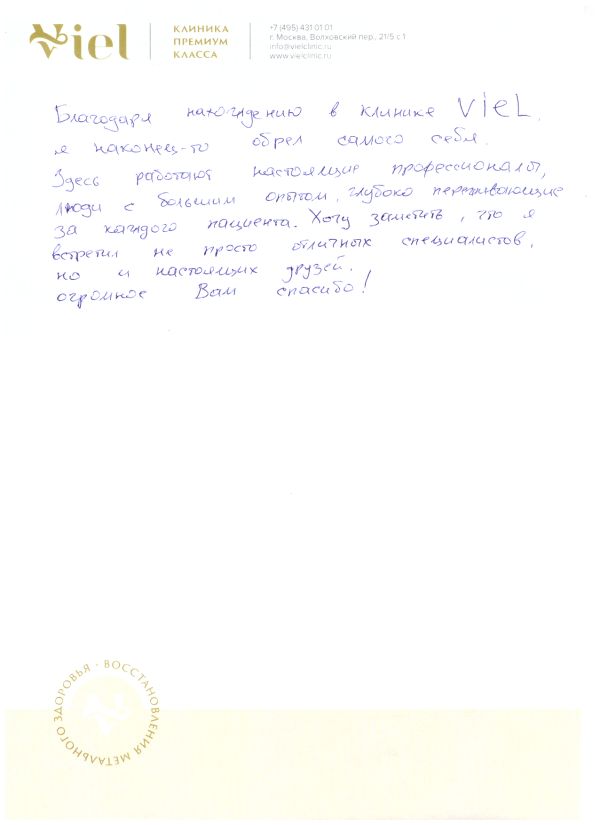 viel
КЛИНИКА
ПРЕМИУМ
КЛАССА
+7 (495) 431 01 01
г. Москва, Волховский пер., 21/5 с.1
info@vielclinic.ru
www.vielclinic.ru
Благодаря нахождению в клинике VieL,
я наконец-то обрел самого себя.
Здесь работают настоящие профессионалы,
люди с большим опытом, глубоко переживающие
за каждого пациента. Хочу заметить, что я
встретил не просто отличных специалистов,
но и настоящих друзей.
огромное Вам спасибо!
ВОССТАНОВЛЕНИЯ МЕТАЛЬНОГО ЗДОРОВЬЯ